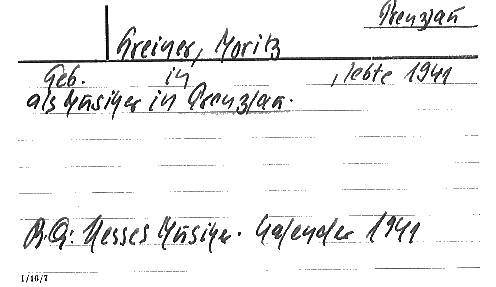 Prenzlau
Greiner, Moritz
Geb. in , lebte 1941
als Musiker in Prenzlau.
B.Q.: Hesses Musiker-Kalender 1941
1/16/7